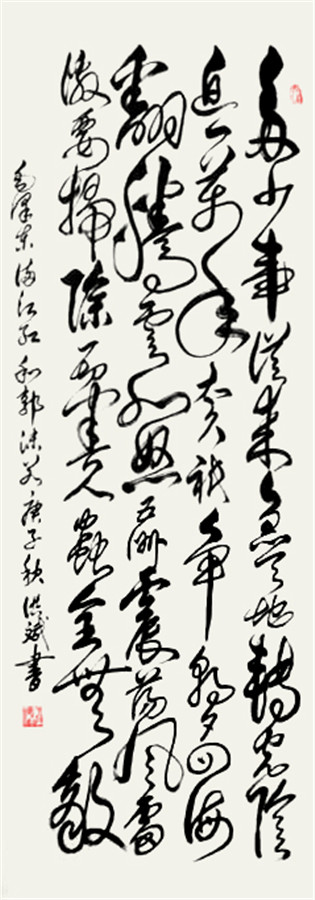 多少事從來急天地轉光陰
迫一萬年太久衹爭朝夕四海
翻騰雲水怒五洲震蕩風雷
激要掃除一切害人蟲全無敵
毛澤東滿江紅和郭沫若庚子秋洪斌書